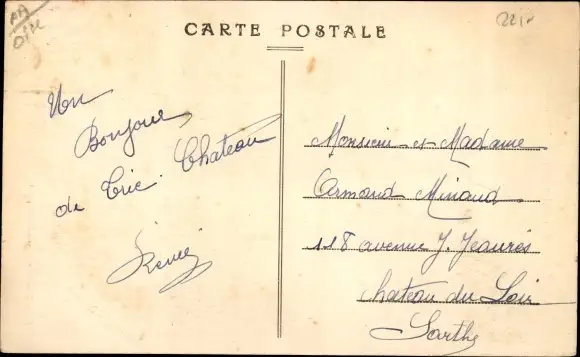 CARTE POSTALE
Un
Bonjour
de Trie Chateau
Monsieur et Madame
Armand Minaud
118 avenue J. Jeaurès
Chateau du Loir
Sarthe